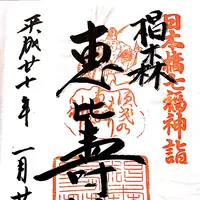 日本橋七福神詣
椙森
恵比寿
平成廿十年
一月廿